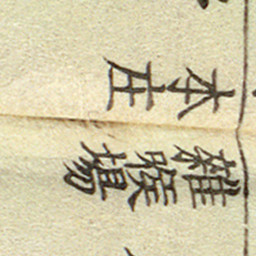 本庄
雑喉場